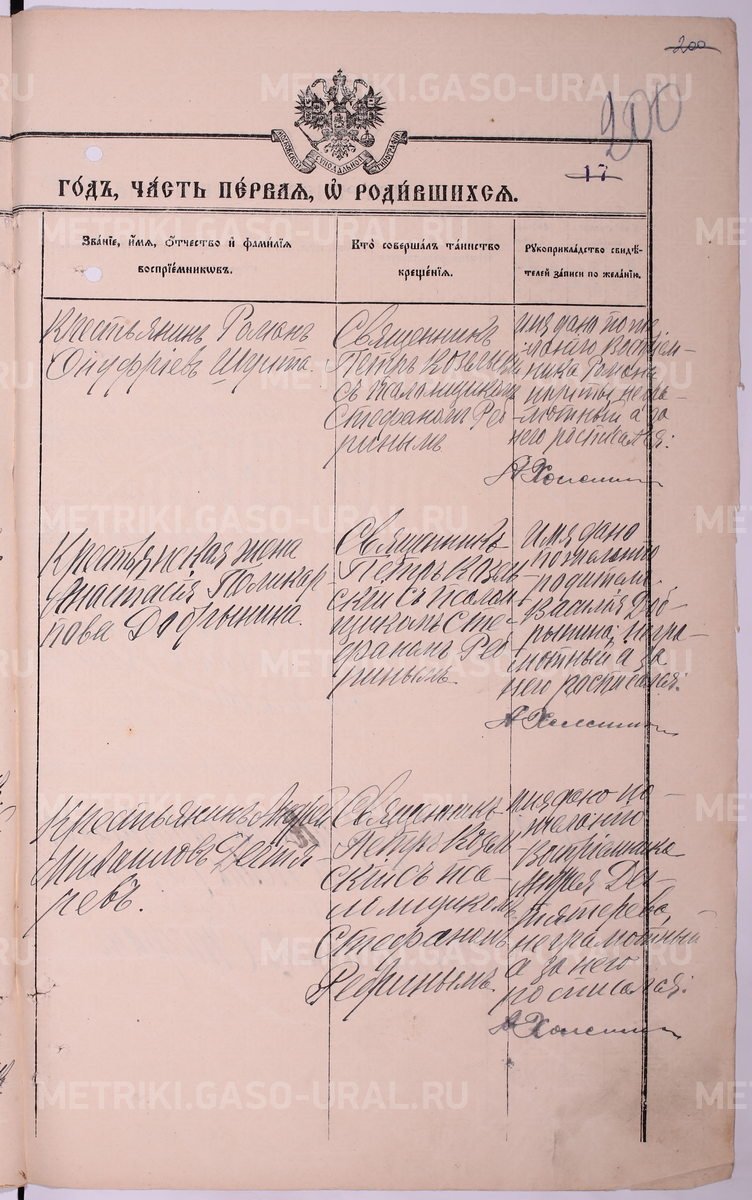 200
200
17
ГО́ДЪ, ЧА́СТЬ ПЕ́РВАЯ, Ѡ҆ РОДИ́ВШИХСЯ.
Зва́нїе, и҆́мя, ѻ҆́тчество и҆ фами́лїя
воспрїе́мникѡвъ.
Кто̀ соверша́лъ та́инство
креще́нїя.
Рꙋкоприкла́дство свидѣ́-
телей за́писи по жела́нїю.
Крестьянинъ Романъ
Онуфріевъ
Священникъ
Петръ
съ псаломщикомъ
Стефаномъ Реф-
ринымъ
имя дано по же-
ланію воспріем-
ника Романа
негра-
мотный а за
него росписался:
Крестьянская жена
Анастасія Поликар-
пова Добрынина.
Священникъ
Петръ Козель-
скій съ псалом-
щикомъ Сте-
фаномъ Реф-
ринымъ.
имя дано
по желанію
родителя
Василія Доб-
рынина, негра-
мотный а за
него росписался:
Крестьянинъ Андрей
Михаиловъ
Священникъ
Петръ Козель-
скій съ пса-
ломщикомъ
Стефаномъ
имя дано по
желанію
воспріемника
Андрея
неграмотный
а за него
росписался: